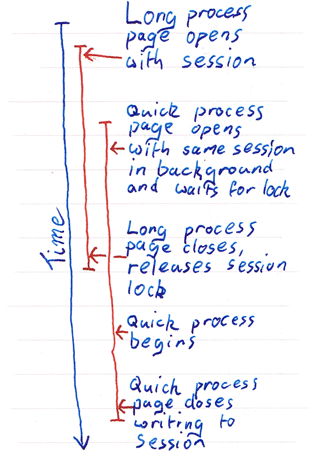 Long process
page opens
with session
Quick process
page opens
with same session
in background
and waits for lock
Long process
page closes,
releases session
lock
Time
Quick process
begins
Quick process
page closes
writing to
session